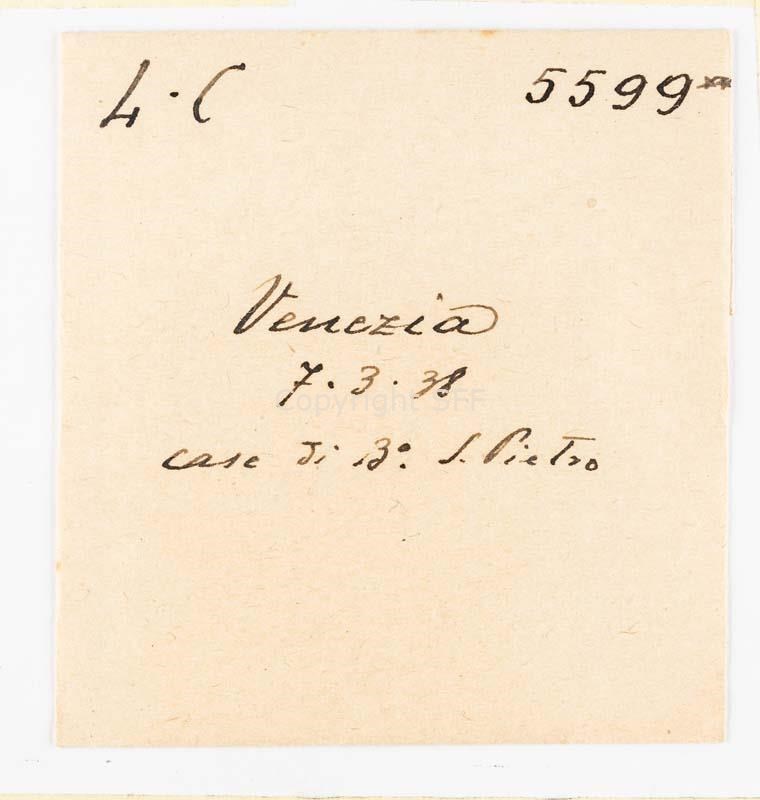 L. C 5599
Venezia
7. 3. 38
Copyright SFF
case di B.º S. Pietro